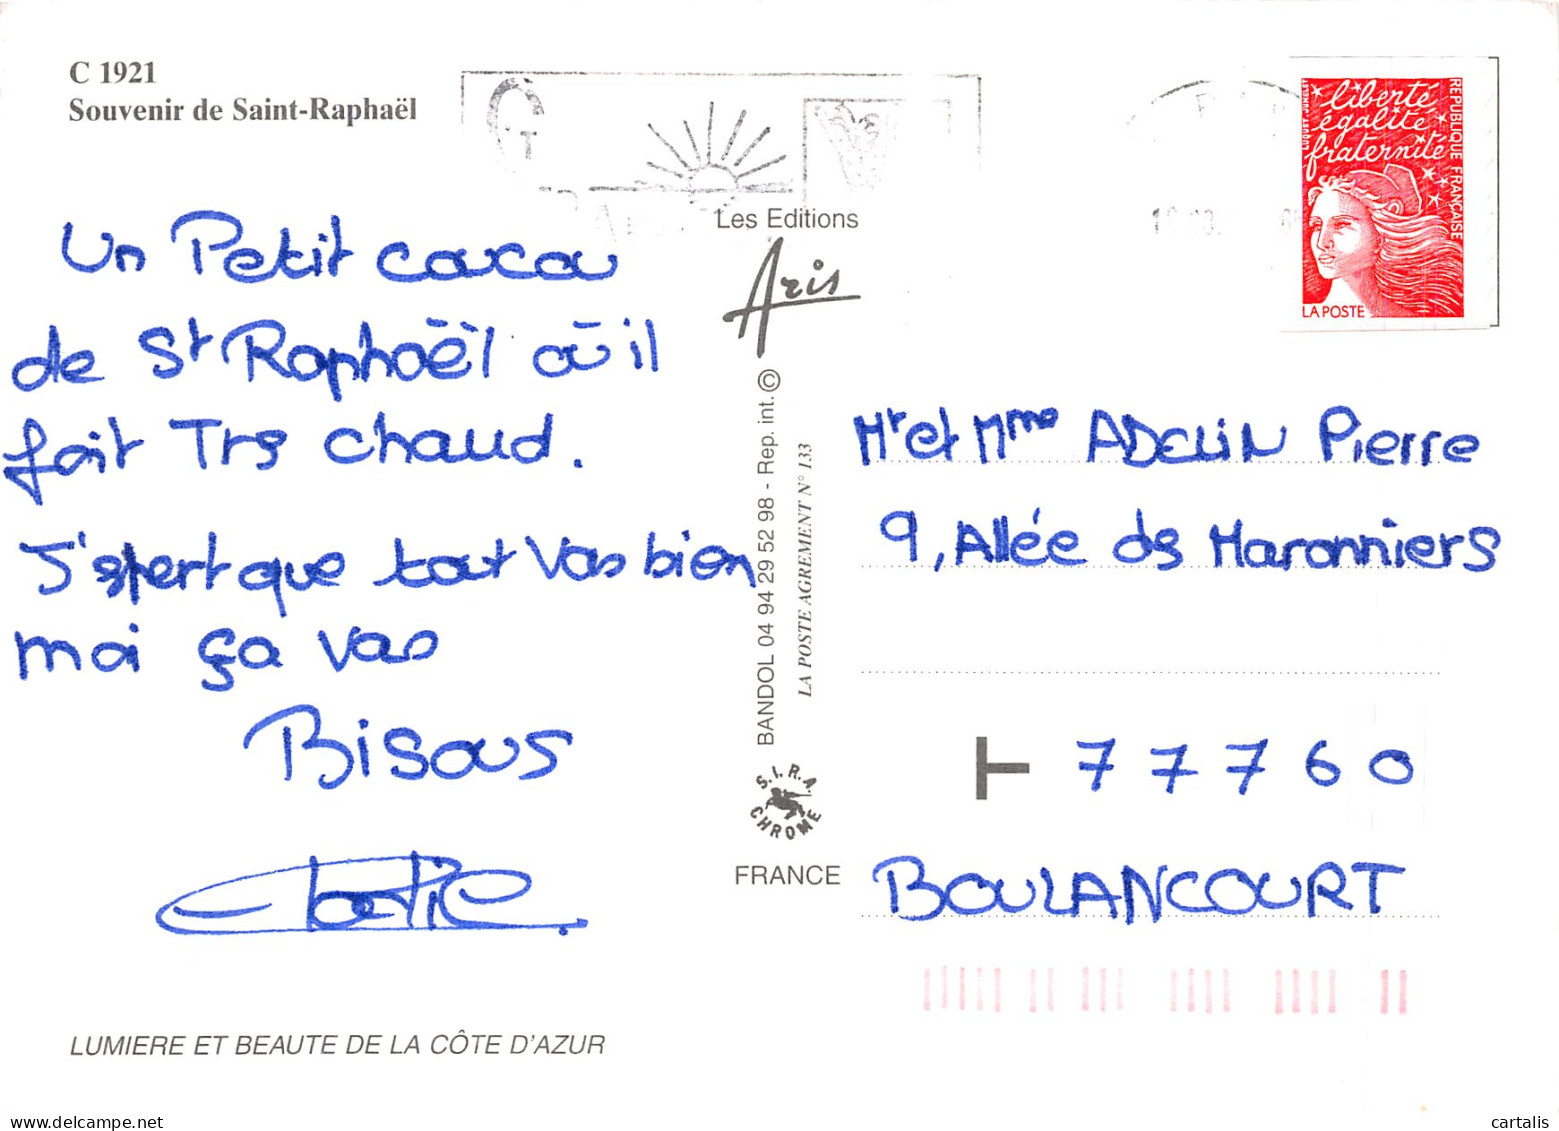 C 1921
Souvenir de Saint-Raphaël
Un Petit caca
de St Raphaël où il
fait Trs chaud.
J'spert que tout Vas bien
moi ça vas
Bisous
LUMIERE ET BEAUTE DE LA CÔTE D'AZUR
Les Editions
Aris
BANDOL 04 94 29 52 98 - Rep. int. ©
LA POSTE AGREMENT N° 133
S.I.R.A.
CHROME
FRANCE
liberté
égalité
fraternité
REPUBLIQUE FRANÇAISE
LA POSTE
Mr et Mme ADELIN Pierre
9, Allée ds Maronniers
77760
BOULANCOURT
cartalis